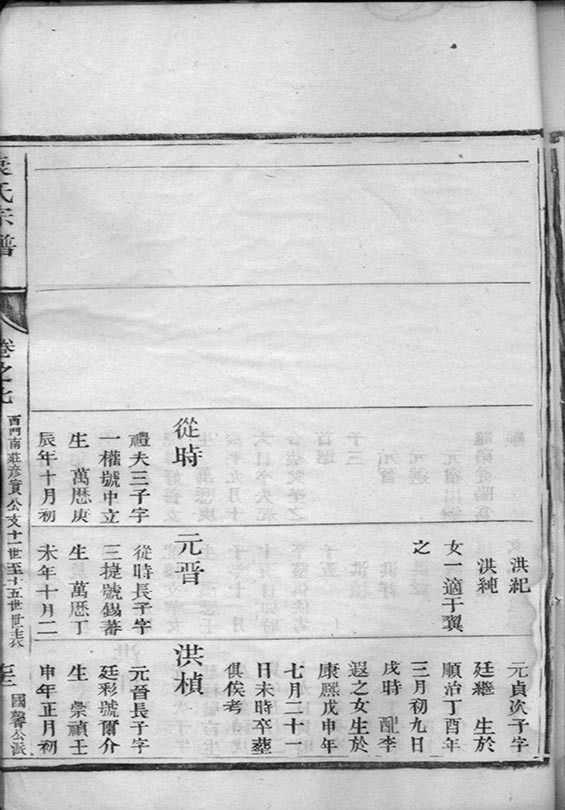 洪紀
洪純
女一適于翼
之
元貞次子字
廷繼 生於
順治丁酉年
三月初九日
戌時 配李
遐之女生於
康熙戊申年
七月二十一
日未時卒塟
俱俟考
從時
禮夫三子字
一權號中立
生 萬厯庚
辰年十月初
元晋
從時長子字
三捷號錫蕃
生 萬厯丁
未年十月二
洪楨
元晉長子字
廷彩號爾介
生 崇禎壬
申年正月初
氏宗譜
卷之七
西門南莊彦賓公支十一世至十五世世表
國馨公派